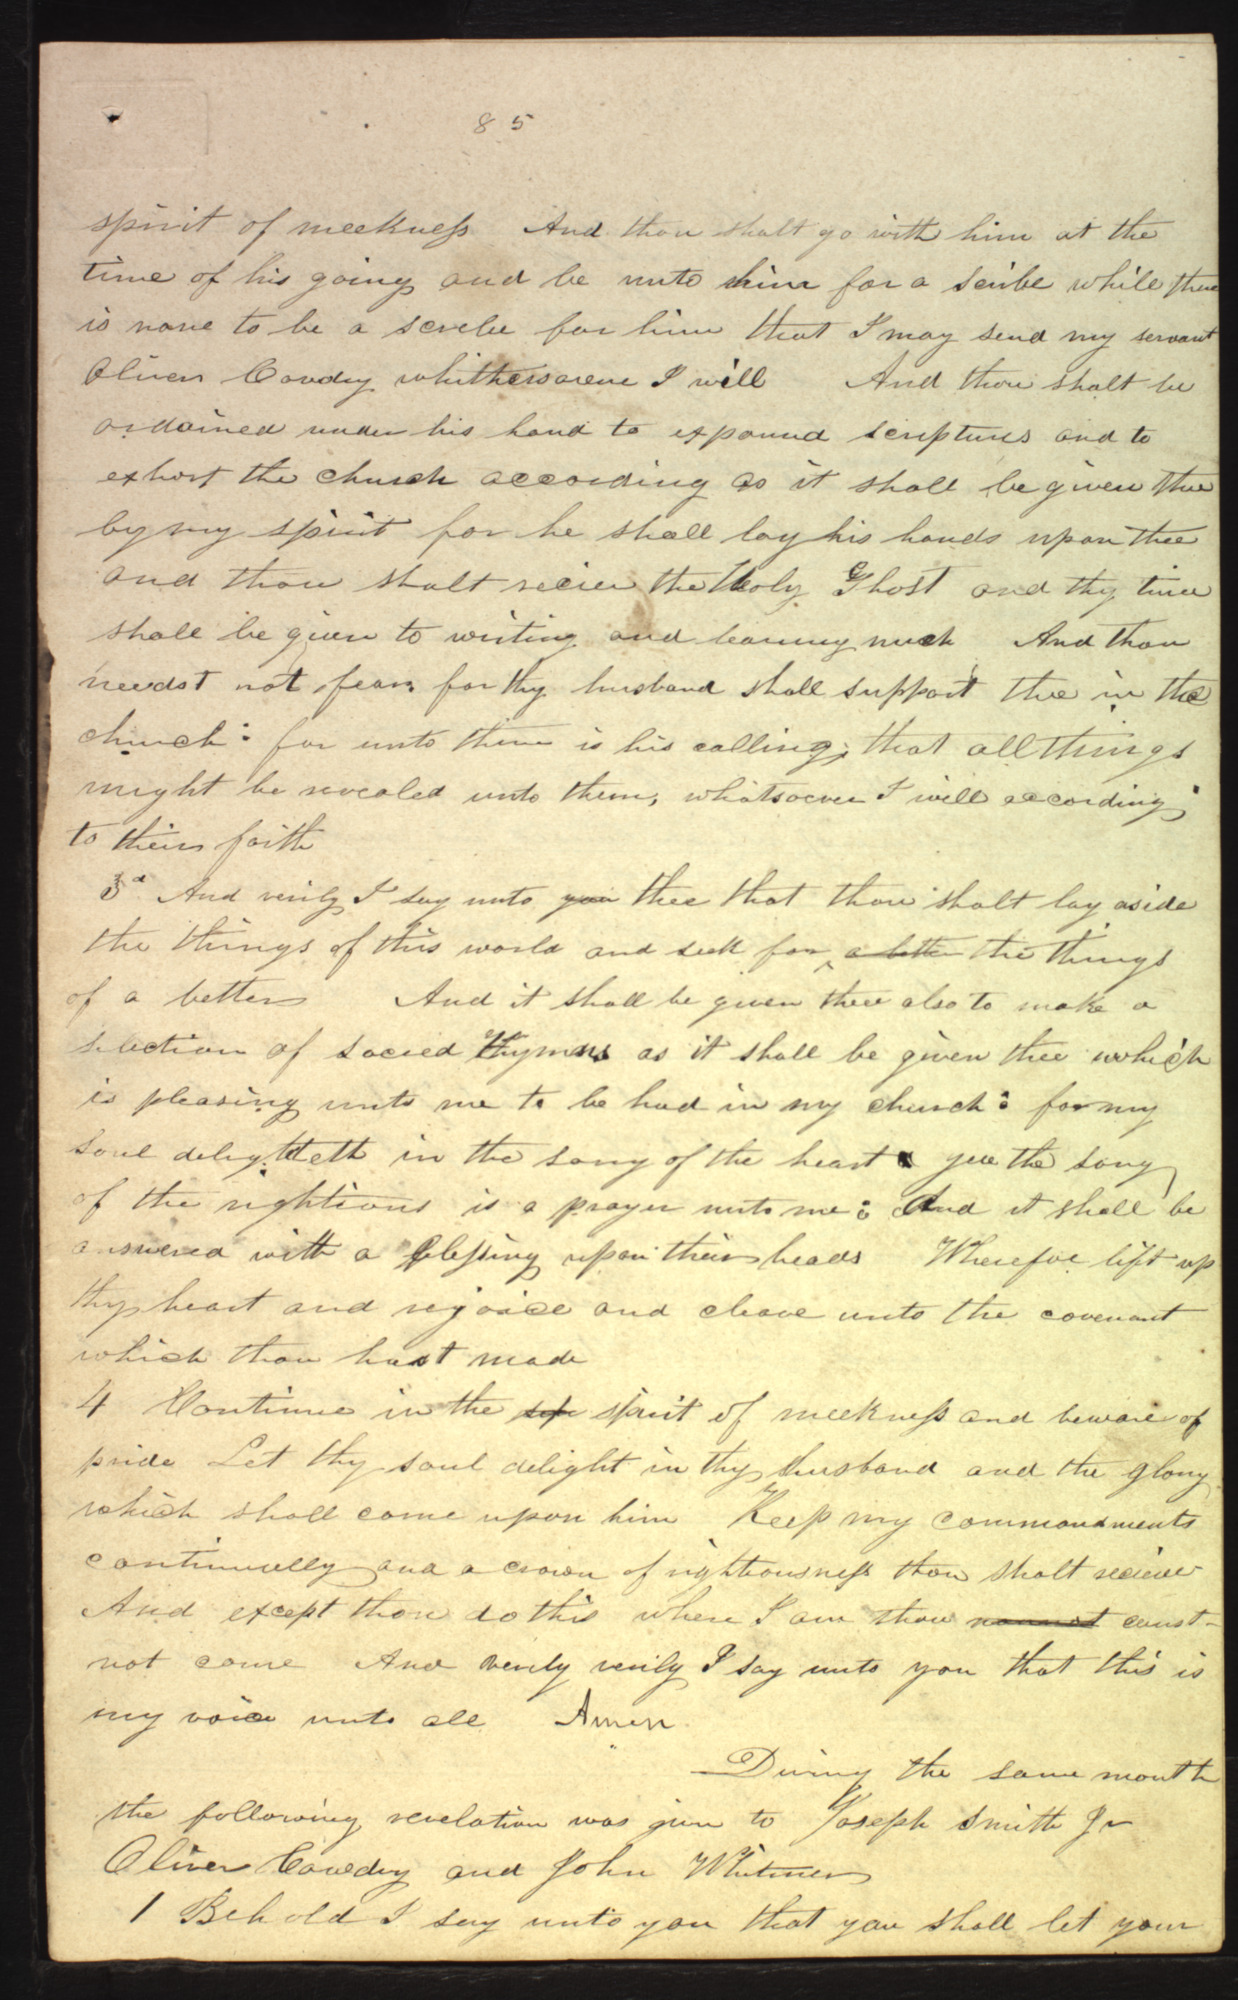 85
spirit of meekness And thou shalt go with him at the
time of his going and be unto him for a scribe while there
is none to be a screbe for him that I may send my servant
Oliver Cowdry whithersoreve I will And thou shalt be
ordained under his hand to expound scriptures and to
exhort the church according as it shall be given thee
by my spirit for he shall lay his hands upon thee
and thou shalt recieve the Holy Ghost and thy time
shall be given to writing and learning much And thou
needst not fear for thy husband shall support thee in the
church: for unto them is his calling; that all things
might be revealed unto them, whatsoever I will according
to their faith
3d And verily I say unto you thee that thou shalt lay aside
the things of this world and seek for a better the things
of a better And it shall be given thee also to make a
selection of sacred Hymns as it shall be given thee which
is pleasing unto me to be had in my church: for my
soul delighteth in the song of the heart yea the song
of the rightious is a prayer unto me: And it shall be
answered with a blessing upon their heads Wherefore lift up
thy heart and rejoice and cleave unto the covenant
which thou hast made
4 Continue in the spirit of meekness and beware of
pride Let thy soul delight in thy husband and the glory
which shall come upon him Keep my commandments
continually and a crown of rightiousness thou shalt recieve
And except thou do this where I am thou canst-
not come And verily verily I say unto you that this is
my voice unto all Amen
During the same month
the following revelation was given to Joseph Smith Jr
Oliver Cowdry and John Whitmer
1 Behold I say unto you that you shall let your